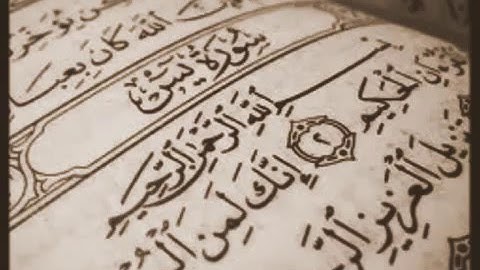 ٱللَّهَ كَانَ بِعِبَا
سُورَةُ يسٓ
بِسْمِ ٱللَّهِ ٱلرَّحْمَٰنِ ٱلرَّحِيمِ
ٱلْحَكِيمِ ٢ إِنَّكَ لَمِنَ ٱلْمُ
تَنزِيلَ ٱلْعَزِيزِ ٱلر